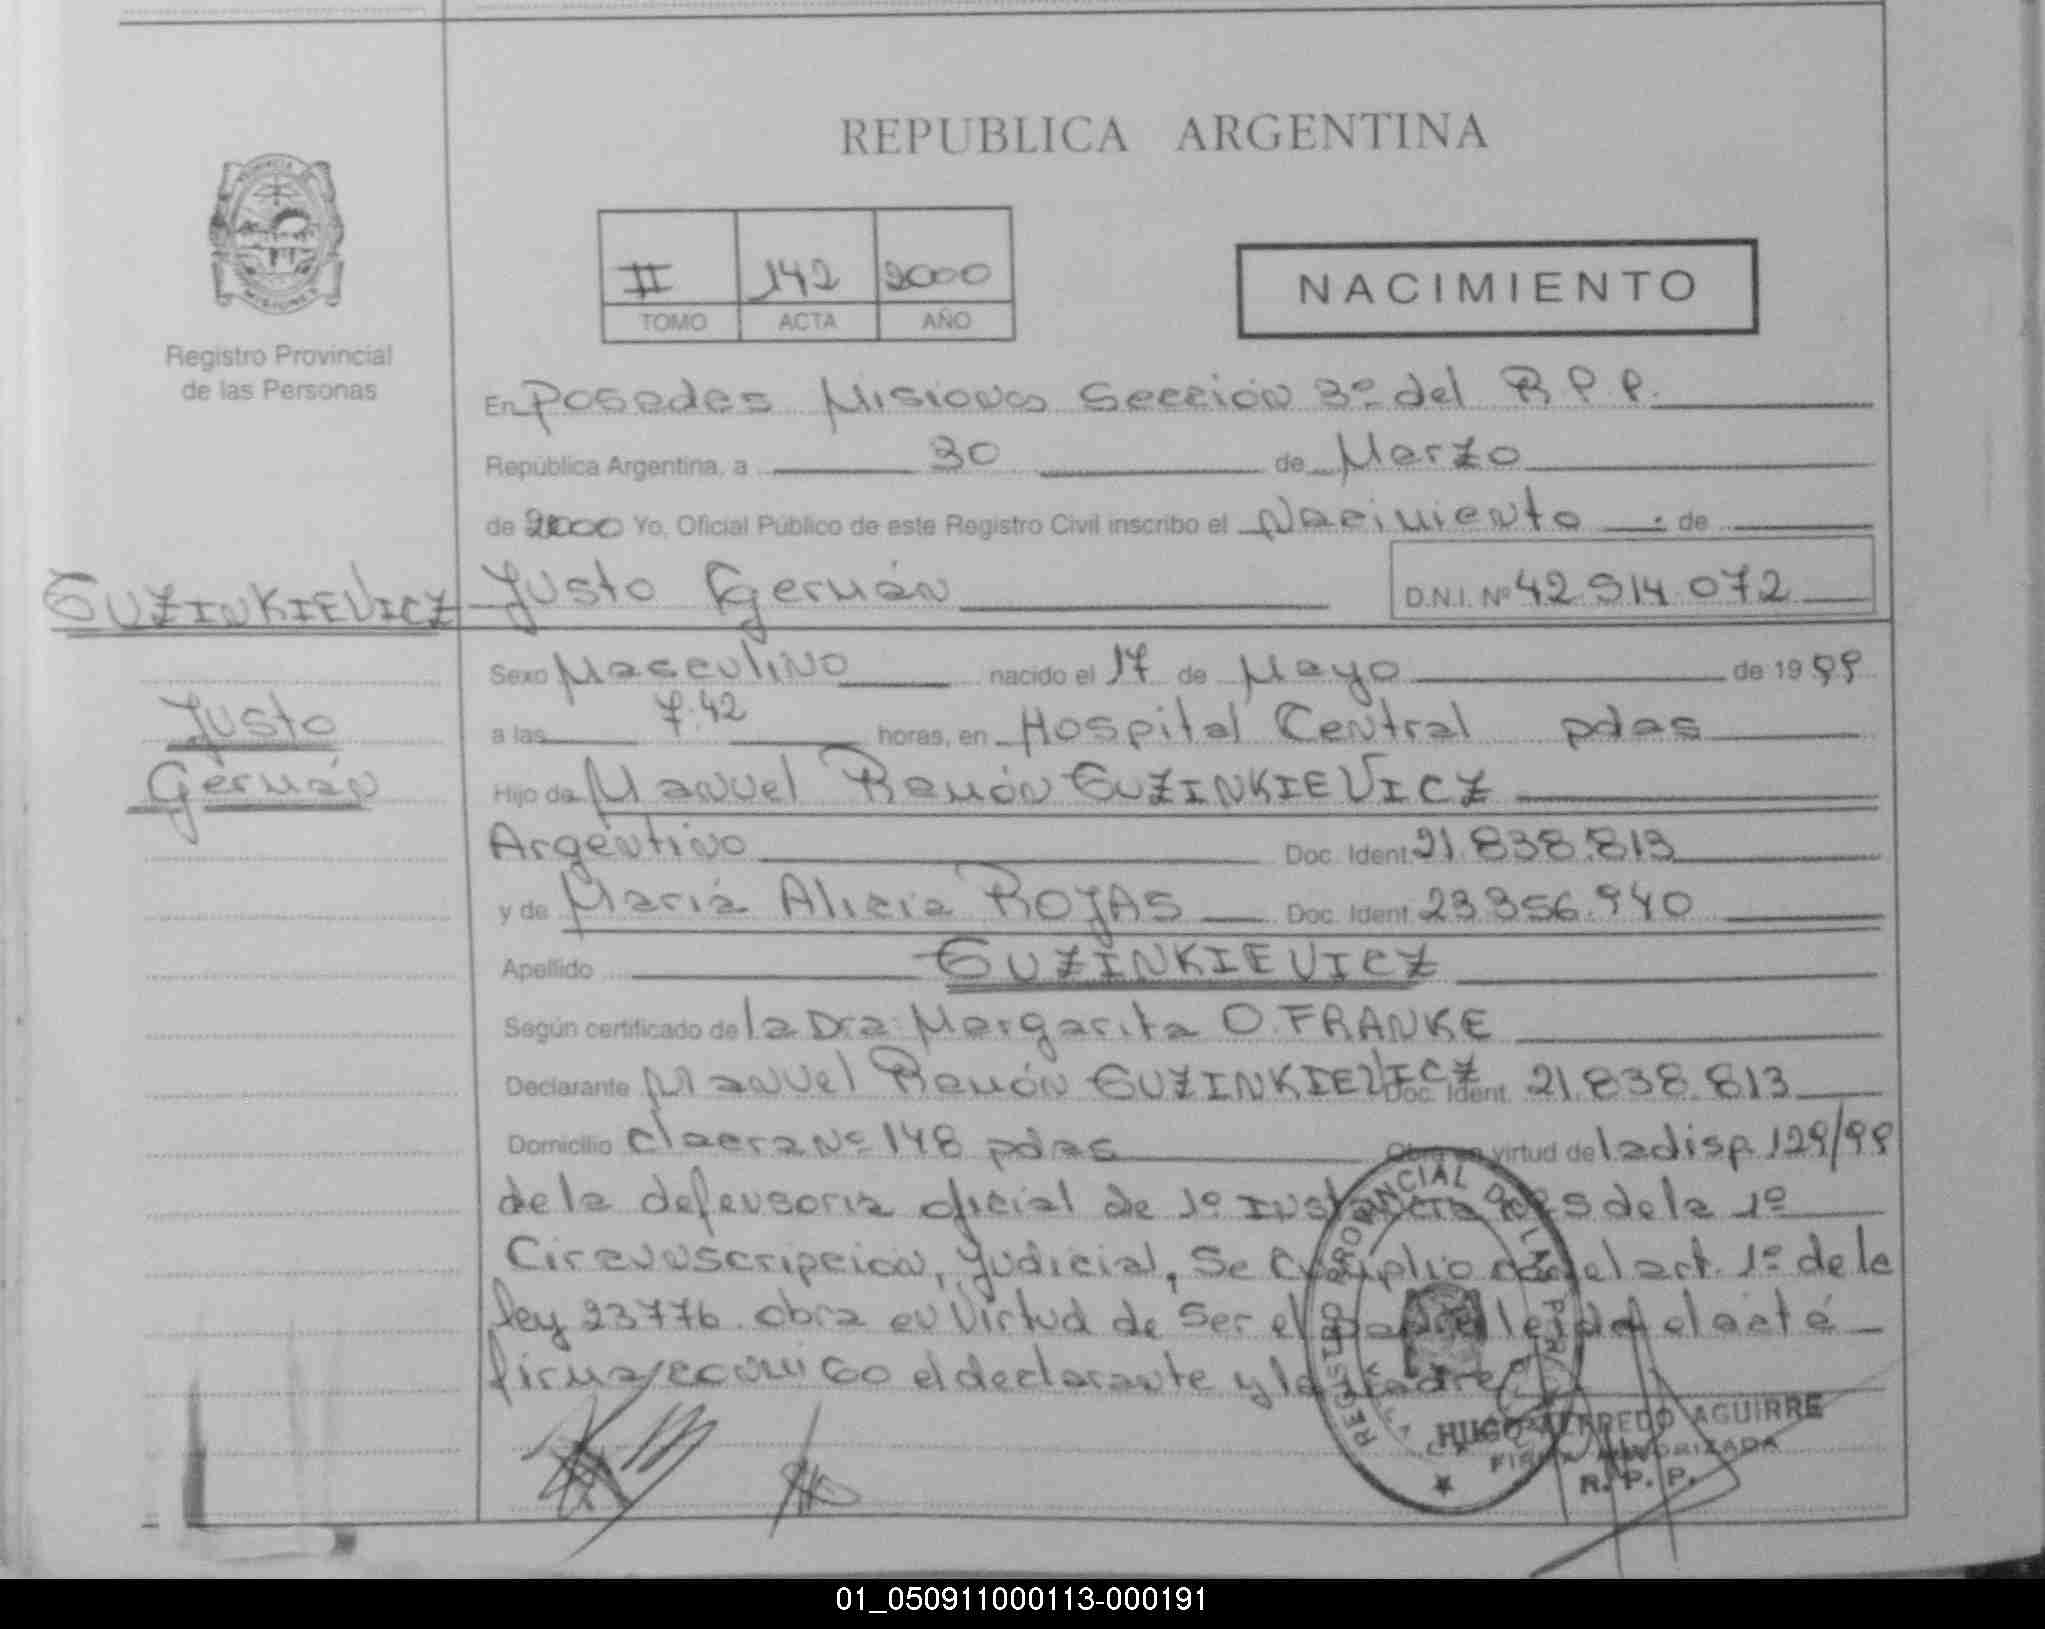 REPUBLICA ARGENTINA
II 142 2000
TOMO ACTA AÑO
NACIMIENTO
Registro Provincial
de las Personas
En Posadas Misiones Sección 3º del R.P.P.
República Argentina, a 30 de Marzo
de 2000 Yo, Oficial Público de este Registro Civil inscribo el Nacimiento de
GUZINKIEVICZ Justo Germán D.N.I. Nº 42 914 072
Justo
Germán
Sexo Masculino nacido el 17 de Mayo de 1999
a las 7.42 horas, en Hospital Central pdas
Hijo de Manuel Ramón GUZINKIEVICZ
Argentino Doc. Ident 21.838.813
y de María Alicia ROJAS Doc. Ident 23.356.940
Apellido GUZINKIEVICZ
Según certificado de la Dra. Margarita O. FRANKE
Declarante Manuel Ramón GUZINKIEVICZ Doc. Ident. 21.838.813
Domicilio Nº 148 pdas Obra en virtud de la disp. 129/99
de la defensoria oficial de 1º Instancia de la 1º
Circunscripcion, Judicial, Se Cumplio con el art. 1º de la
ley 23776. obra en Virtud de Ser el padre leida el acta
firma conmigo el declarante y la madre
REGISTRO PROVINCIAL DE LAS PER
HUGO ALFREDO AGUIRRE
FIRMA AUTORIZADA
R. P. P.
01_050911000113-000191